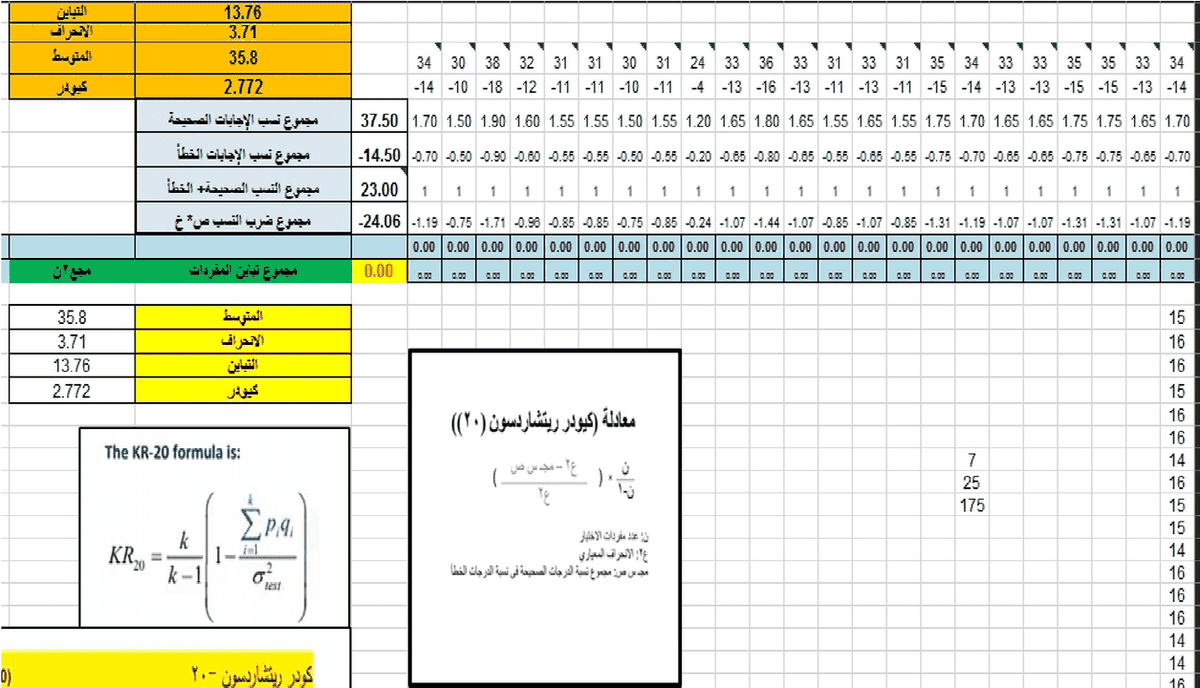 التباين 13.76
الانحراف 3.71
المتوسط 35.8 34 30 38 32 31 31 30 31 24 33 36 33 31 33 31 35 34 33 33 35 35 33 34
كيودر 2.772 -14 -10 -18 -12 -11 -11 -10 -11 -4 -13 -16 -13 -11 -13 -11 -15 -14 -13 -13 -15 -15 -13 -14
مجموع نسب الإجابات الصحيحة 37.50 1.70 1.50 1.90 1.60 1.55 1.55 1.50 1.55 1.20 1.65 1.80 1.65 1.55 1.65 1.55 1.75 1.70 1.65 1.65 1.75 1.75 1.65 1.70
مجموع نسب الإجابات الخطأ -14.50 -0.70 -0.50 -0.90 -0.60 -0.55 -0.55 -0.50 -0.55 -0.20 -0.65 -0.80 -0.65 -0.55 -0.65 -0.55 -0.75 -0.70 -0.65 -0.65 -0.75 -0.75 -0.65 -0.70
مجموع النسب الصحيحة+ الخطأ 23.00 1 1 1 1 1 1 1 1 1 1 1 1 1 1 1 1 1 1 1 1 1 1 1
مجموع ضرب النسب ص* خ -24.06 -1.19 -0.75 -1.71 -0.96 -0.85 -0.85 -0.75 -0.85 -0.24 -1.07 -1.44 -1.07 -0.85 -1.07 -0.85 -1.31 -1.19 -1.07 -1.07 -1.31 -1.31 -1.07 -1.19
0.00 0.00 0.00 0.00 0.00 0.00 0.00 0.00 0.00 0.00 0.00 0.00 0.00 0.00 0.00 0.00 0.00 0.00 0.00 0.00 0.00 0.00 0.00
مجع٢ن مجموع تباين المفردات 0.00 0.00 0.00 0.00 0.00 0.00 0.00 0.00 0.00 0.00 0.00 0.00 0.00 0.00 0.00 0.00 0.00 0.00 0.00 0.00 0.00 0.00 0.00 0.00
35.8 المتوسط 15
3.71 الانحراف 16
13.76 التباين 16
2.772 كيودر 15
16
16
7 14
25 16
175 15
15
14
16
16
16
14
14
16
The KR-20 formula is:
KR20 = k / k – 1 ( 1 – k Σ i=1 piqi / σ2 test )
معادلة (كيودر ريتشاردسون (٢٠))
ن / ن-١ × ( ع٢ – مجـ س ص / ع٢ )
ن: عدد مفردات الاختبار
ع٢: الانحراف المعياري
مجـ س ص: مجموع نسبة الدرجات الصحيحة في نسبة الدرجات الخطأ
كودر ريتشاردسون -٢٠